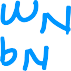 WN
bN